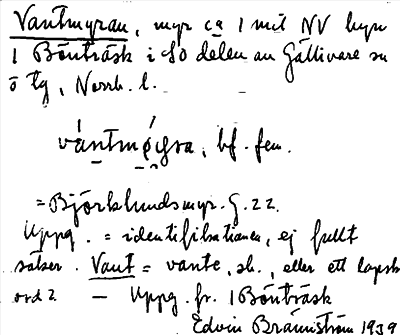 Vantmyran, myr ca 1 mil NV byn
1 Bönträsk i SO delen av Gällivare sn
ö tg, Norrb. l.
vántmý̨ra, bf. fem.
= Björklundsmyr. G. 22.
Uppg. = identifikationen, ej fullt
säker. Vant = vante, sb., eller ett lapsk
ord? — Uppg. fr. 1 Bönträsk
Edvin Brännström 1939